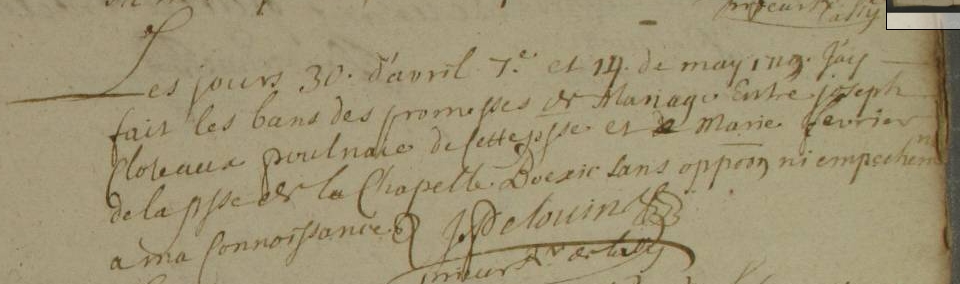 Les jours 30. d'avril 7.e et 14. de may 1719. J'ay
fait les bans des promesses de Mariage Entre joseph
Cloteaux poulnaie de Cette psse et de Marie fevrier
de la psse de la Chapelle Boexic sans oppoōn ni empechem
a ma Connoissance. J. Delouin
prieur Rr de